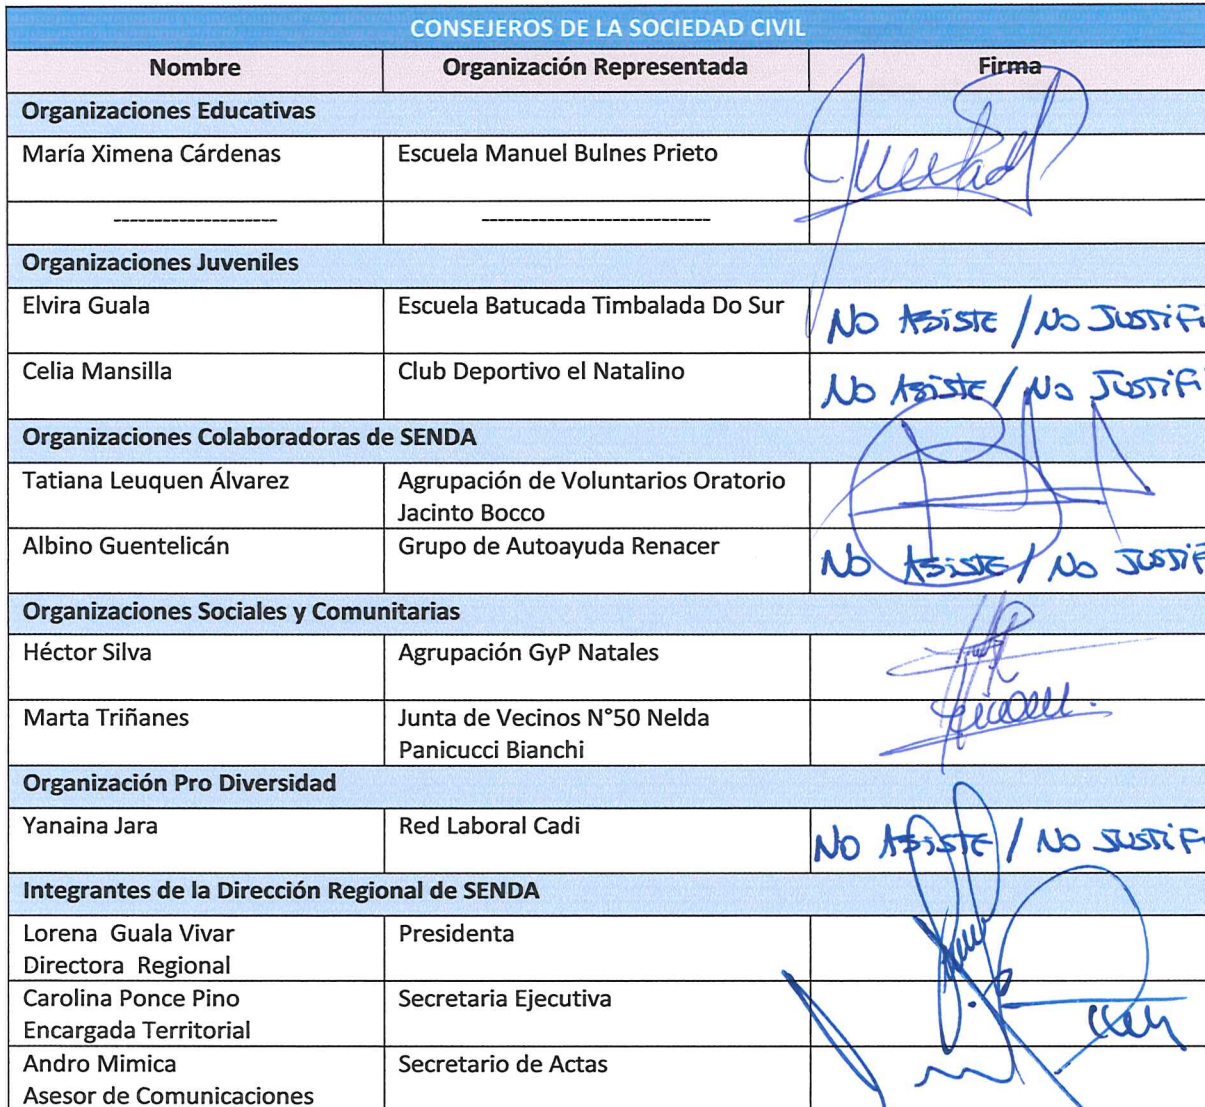 CONSEJEROS DE LA SOCIEDAD CIVIL
Nombre Organización Representada Firma
Organizaciones Educativas
María Ximena Cárdenas Escuela Manuel Bulnes Prieto
-------------------- ----------------------------
Organizaciones Juveniles
Elvira Guala Escuela Batucada Timbalada Do Sur No Asiste / No Justifi
Celia Mansilla Club Deportivo el Natalino No Asiste / No Justifi
Organizaciones Colaboradoras de SENDA
Tatiana Leuquen Álvarez Agrupación de Voluntarios Oratorio
Jacinto Bocco
Albino Guentelicán Grupo de Autoayuda Renacer No Asiste / No Justif
Organizaciones Sociales y Comunitarias
Héctor Silva Agrupación GyP Natales
Marta Triñanes Junta de Vecinos N°50 Nelda
Panicucci Bianchi
Organización Pro Diversidad
Yanaina Jara Red Laboral Cadi No Asiste / No Justifi
Integrantes de la Dirección Regional de SENDA
Lorena Guala Vivar Presidenta
Directora Regional
Carolina Ponce Pino Secretaria Ejecutiva
Encargada Territorial
Andro Mimica Secretario de Actas
Asesor de Comunicaciones